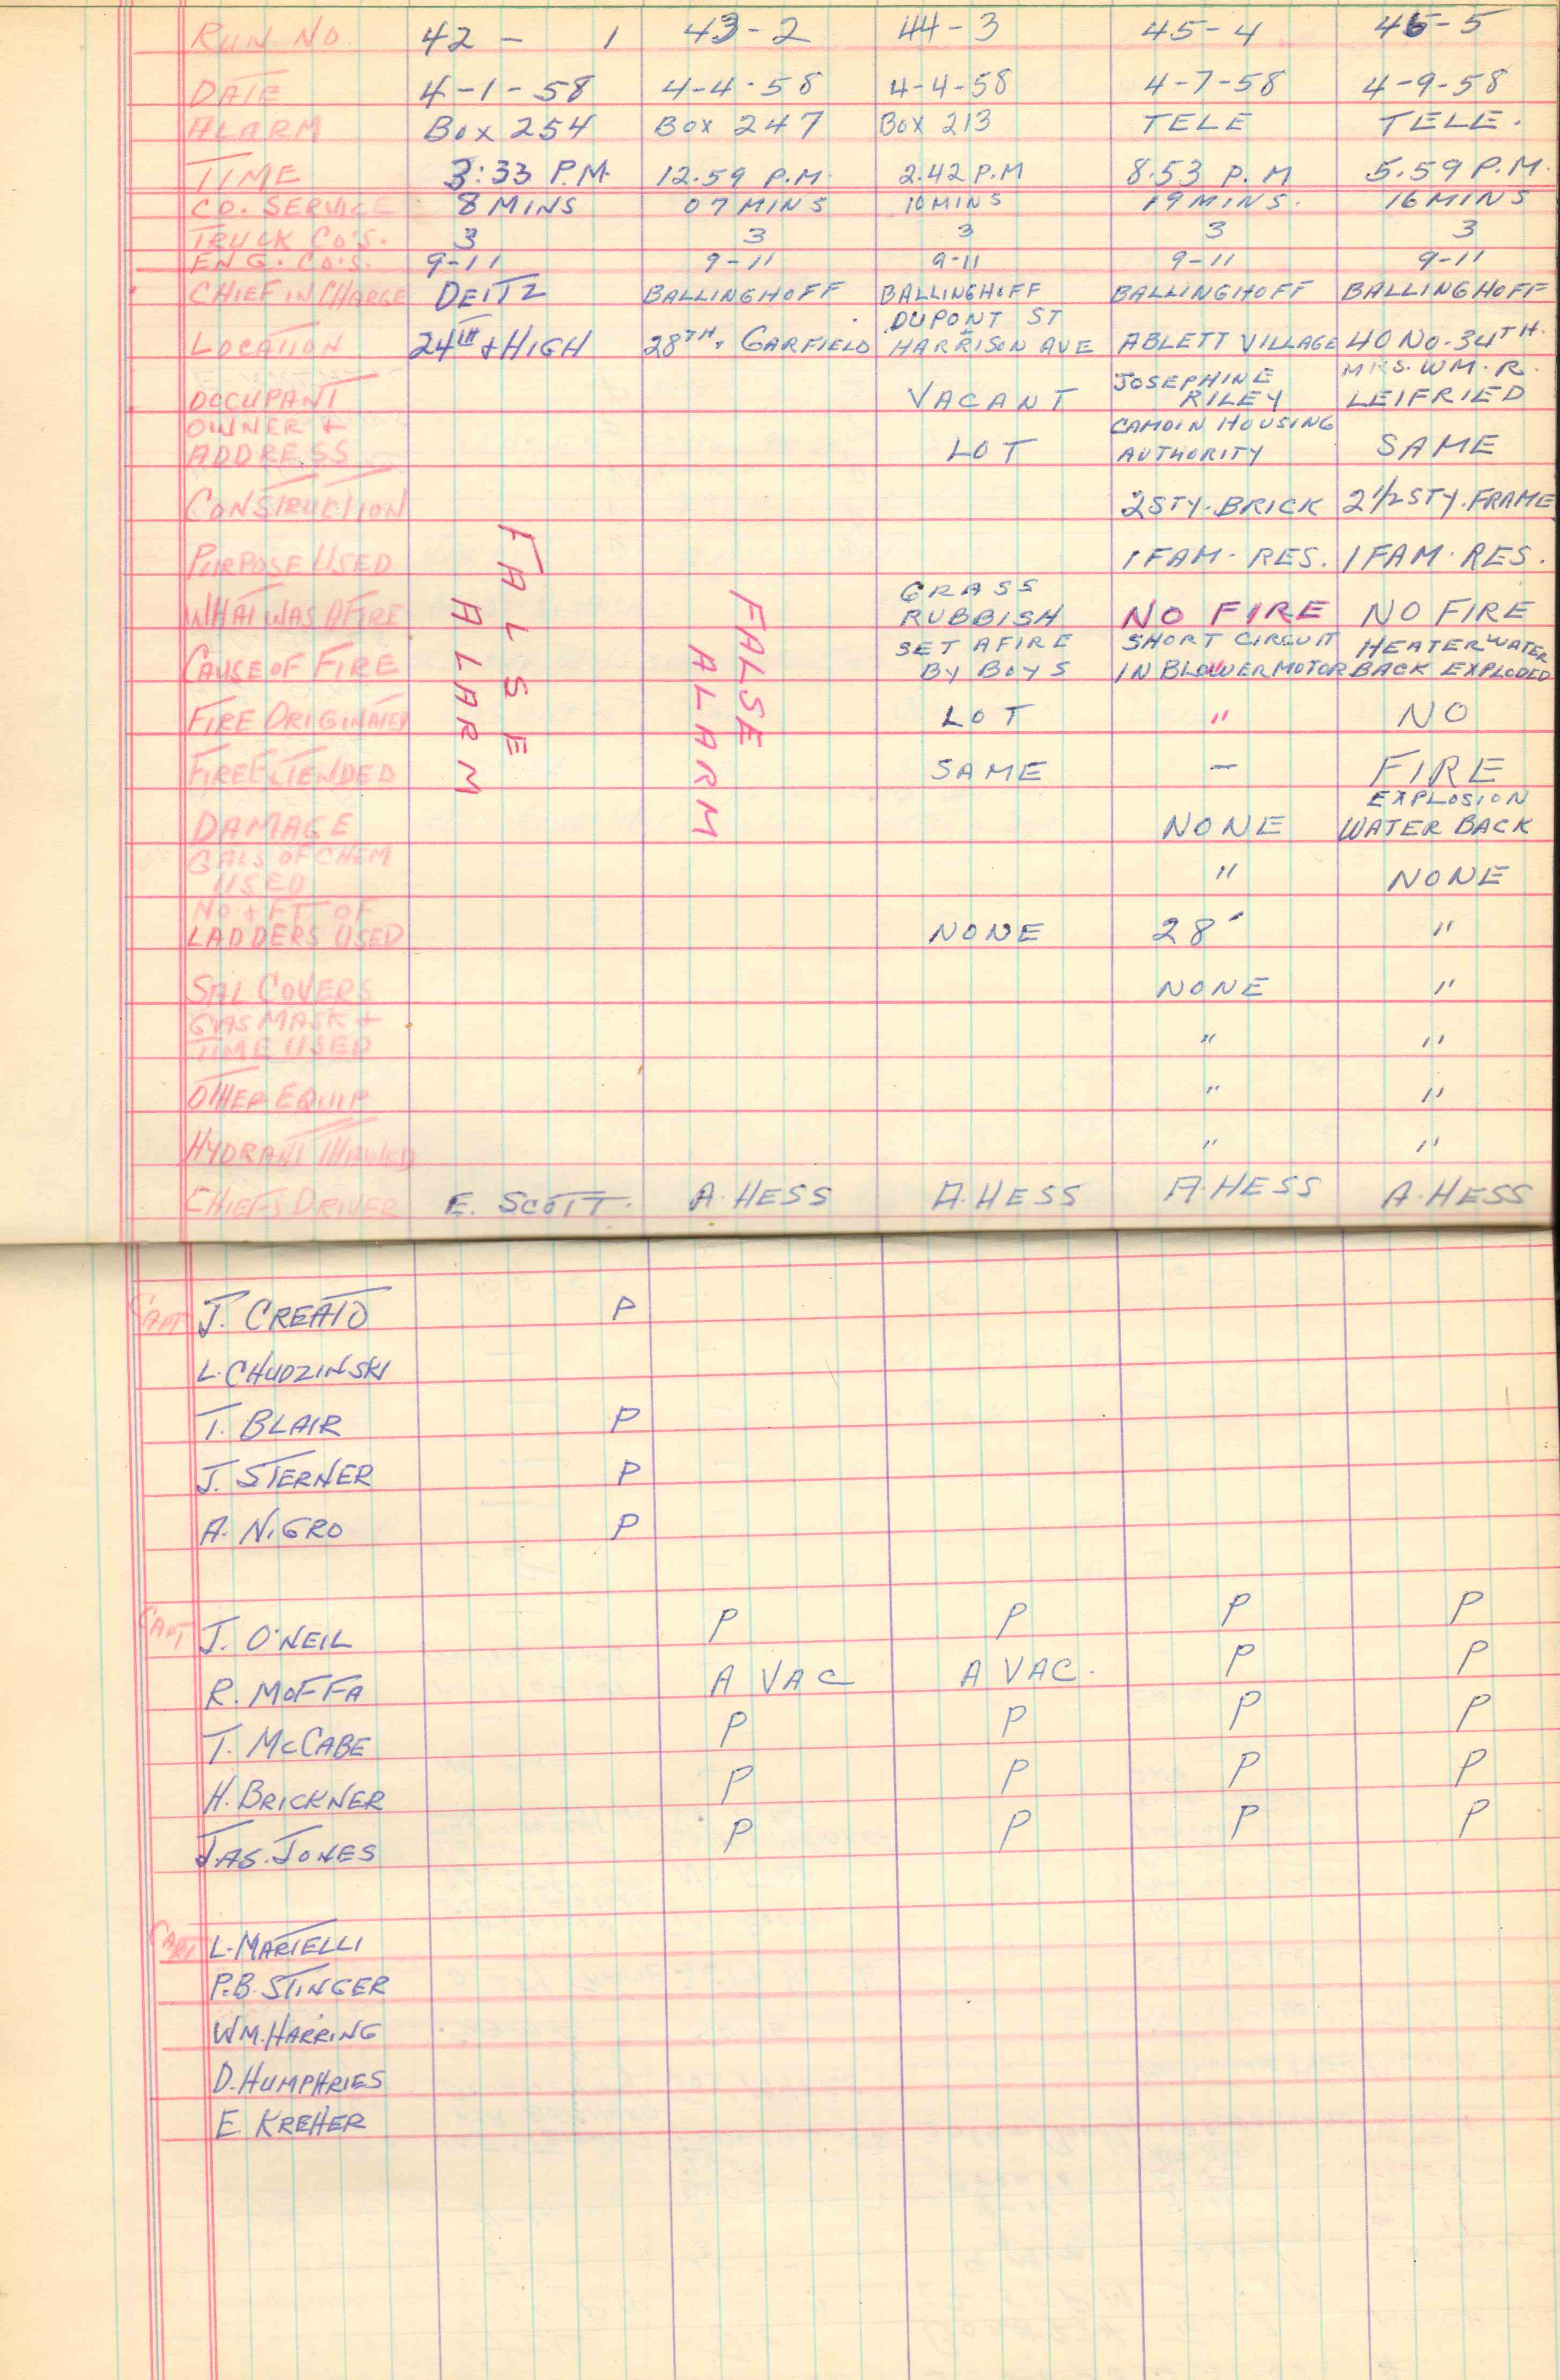 RUN NO. 42 - 1 43-2 44-3 45-4 46-5
DATE 4-1-58 4-4-58 4-4-58 4-7-58 4-9-58
ALARM BOX 254 BOX 247 BOX 213 TELE TELE.
TIME 3:33 P.M. 12.59 P.M. 2.42 P.M 8.53 P.M 5.59 P.M.
CO. SERVICE 8 MINS 07 MINS 10 MINS 19 MINS. 16 MINS
TRUCK CO'S. 3 3 3 3 3
ENG. CO'S. 9-11 9-11 9-11 9-11 9-11
CHIEF IN CHARGE DEITZ BALLINGHOFF BALLINGHOFF BALLINGHOFF BALLINGHOFF
DUPONT ST
LOCATION 24TH & HIGH 28TH & GARFIELD HARRISON AVE ABLETT VILLAGE 40 NO. 34TH.
JOSEPHINE MRS. WM. R.
OCCUPANT VACANT RILEY LEIFRIED
OWNER & CAMDIN HOUSING
ADDRESS LOT AUTHORITY SAME
CONSTRUCTION 2STY. BRICK 2 1/2 STY. FRAME
PURPOSE USED 1 FAM. RES. 1 FAM. RES.
GRASS
WHAT WAS AFIRE RUBBISH NO FIRE NO FIRE
SET AFIRE SHORT CIRCUIT HEATER WATER
CAUSE OF FIRE BY BOYS IN BLOWER MOTOR BACK EXPLODED
FALSE ALARM
FALSE ALARM
FIRE ORIGINATED LOT " NO
FIRE EXTENDED SAME - FIRE
EXPLOSION
DAMAGE NONE WATER BACK
GALS OF CHEM
USED " NONE
NO & FT. OF
LADDERS USED NONE 28' "
SAL COVERS NONE "
GAS MASK &
TIME USED " "
OTHER EQUIP " "
HYDRANT THAWED " "
CHIEFS DRIVER E. SCOTT. A. HESS A. HESS A. HESS A. HESS
CAPT J. CREATO P
L. CHUDZINSKI
T. BLAIR P
J. STERNER P
A. NIGRO P
CAPT J. O'NEIL P P P P
R. MOFFA A VAC A VAC. P P
T. McCABE P P P P
H. BRICKNER P P P P
JAS. JONES P P P P
CAPT L. MARTELLI
P.B. STINGER
WM. HARRING
D. HUMPHRIES
E KREHER